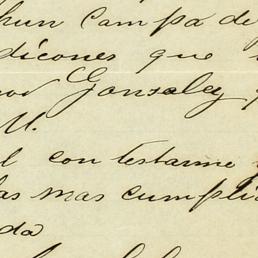 hun Campa de
dicones que
Gonzalez
M.
l con testarme
as mas cumpli
da